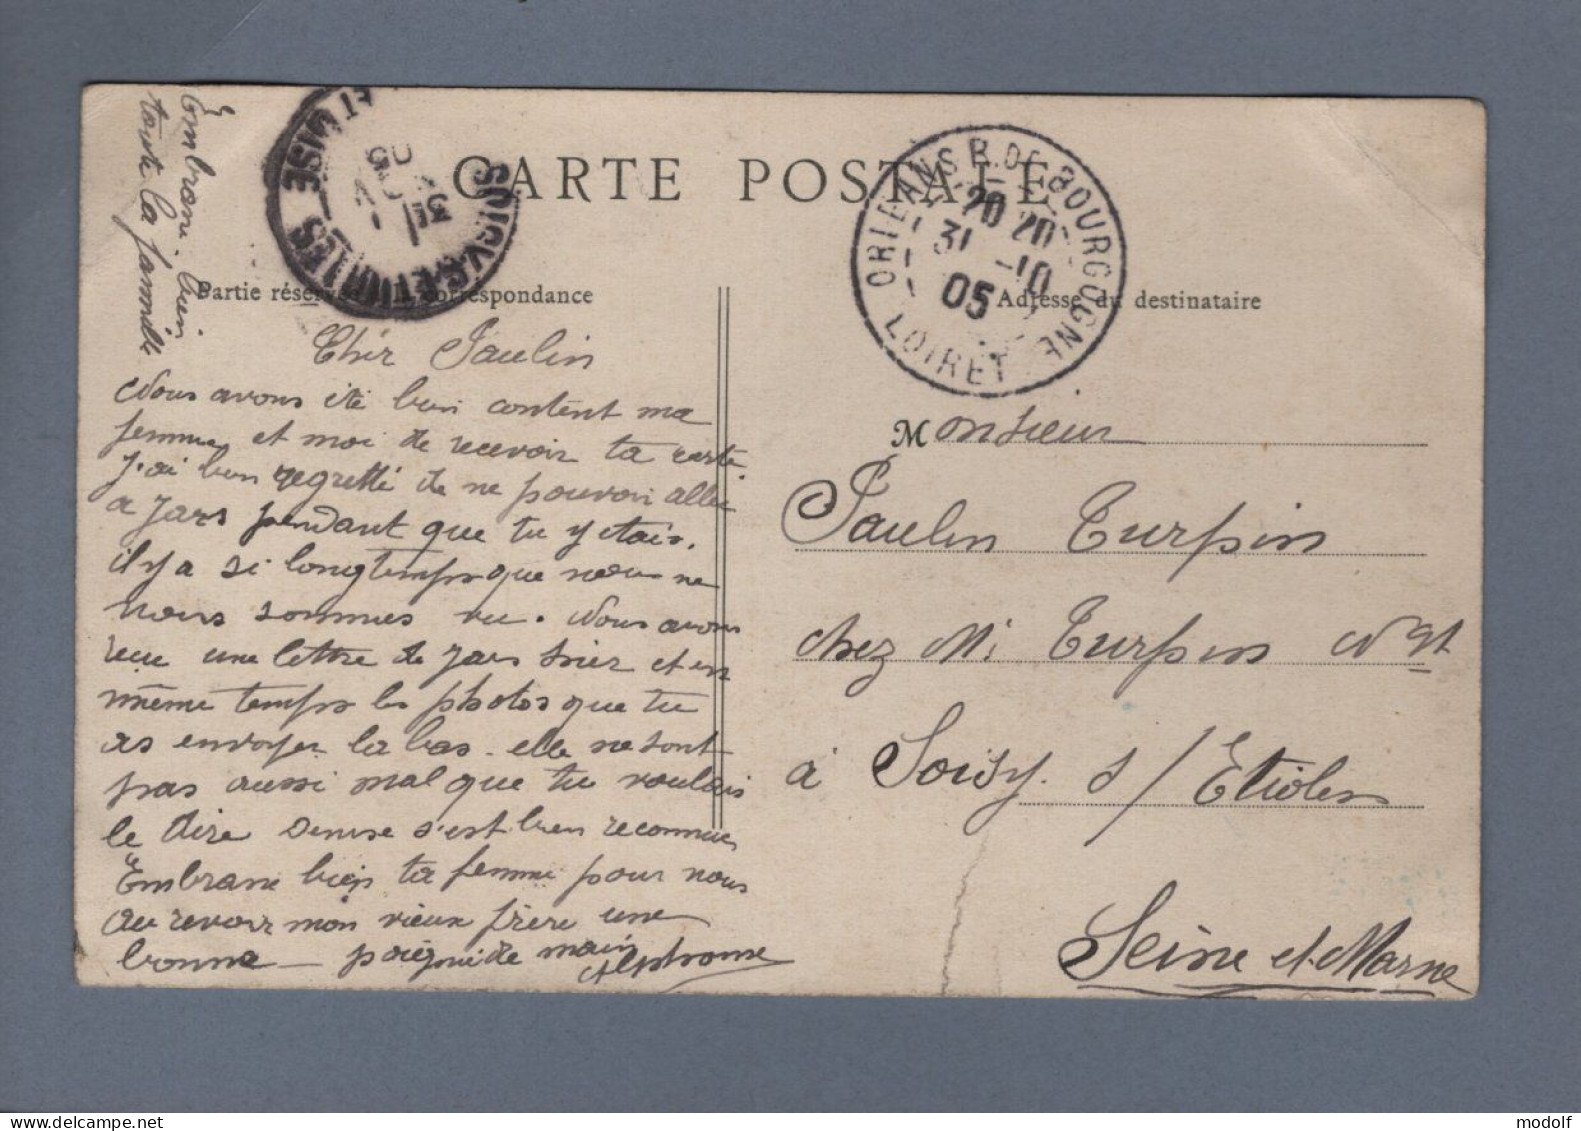 CARTE POSTALE
Partie réservée à la correspondance
Adresse du destinataire
ORLEANS R. DE BOURGOGNE
20 20
31 -10
05
LOIRET
ET OISE
Embrasse bien
toute la famille
Chèr Paulin
Nous avons été bien contènt ma
femme et moi de recevoir ta carte.
j'ai bien regretté de ne pouvoir aller
a Jars pendant que tu y étais.
il y a si longtemps que nous ne
nous sommes vu. Nous avons
reçu une lettre de Jars hier et en
même temps les photos que tu
as envoyer la bas. elle ne sont
pas aussi mal que tu voulais
le dire Denise s'est bien reconnue
Embrasse bien ta femme pour nous
au revoir mon vieux frère une
bonne poignée de main
Alphonse
Monsieur
Paulin Turpin
chez Mr Turpin
à Soisy s/ Etiolles
Seine et Marne
modolf